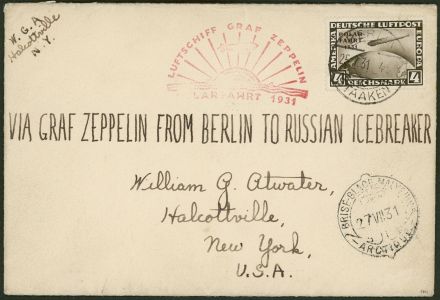 W. G. A
Halcottville
N. Y.
LUFTSCHIFF GRAF ZEPPELIN
POLARFAHRT 1931
DEUTSCHE LUFTPOST
AMERIKA
EUROPA
POLAR-
FAHRT
1931
4 REICHSMARK 4
STAAKEN
VIA GRAF ZEPPELIN FROM BERLIN TO RUSSIAN ICEBREAKER
William G. Atwater,
Halcottville,
New York,
U.S.A.
BRISE-GLACE MALYGUIN
27 VII 31
ARCTIQUE